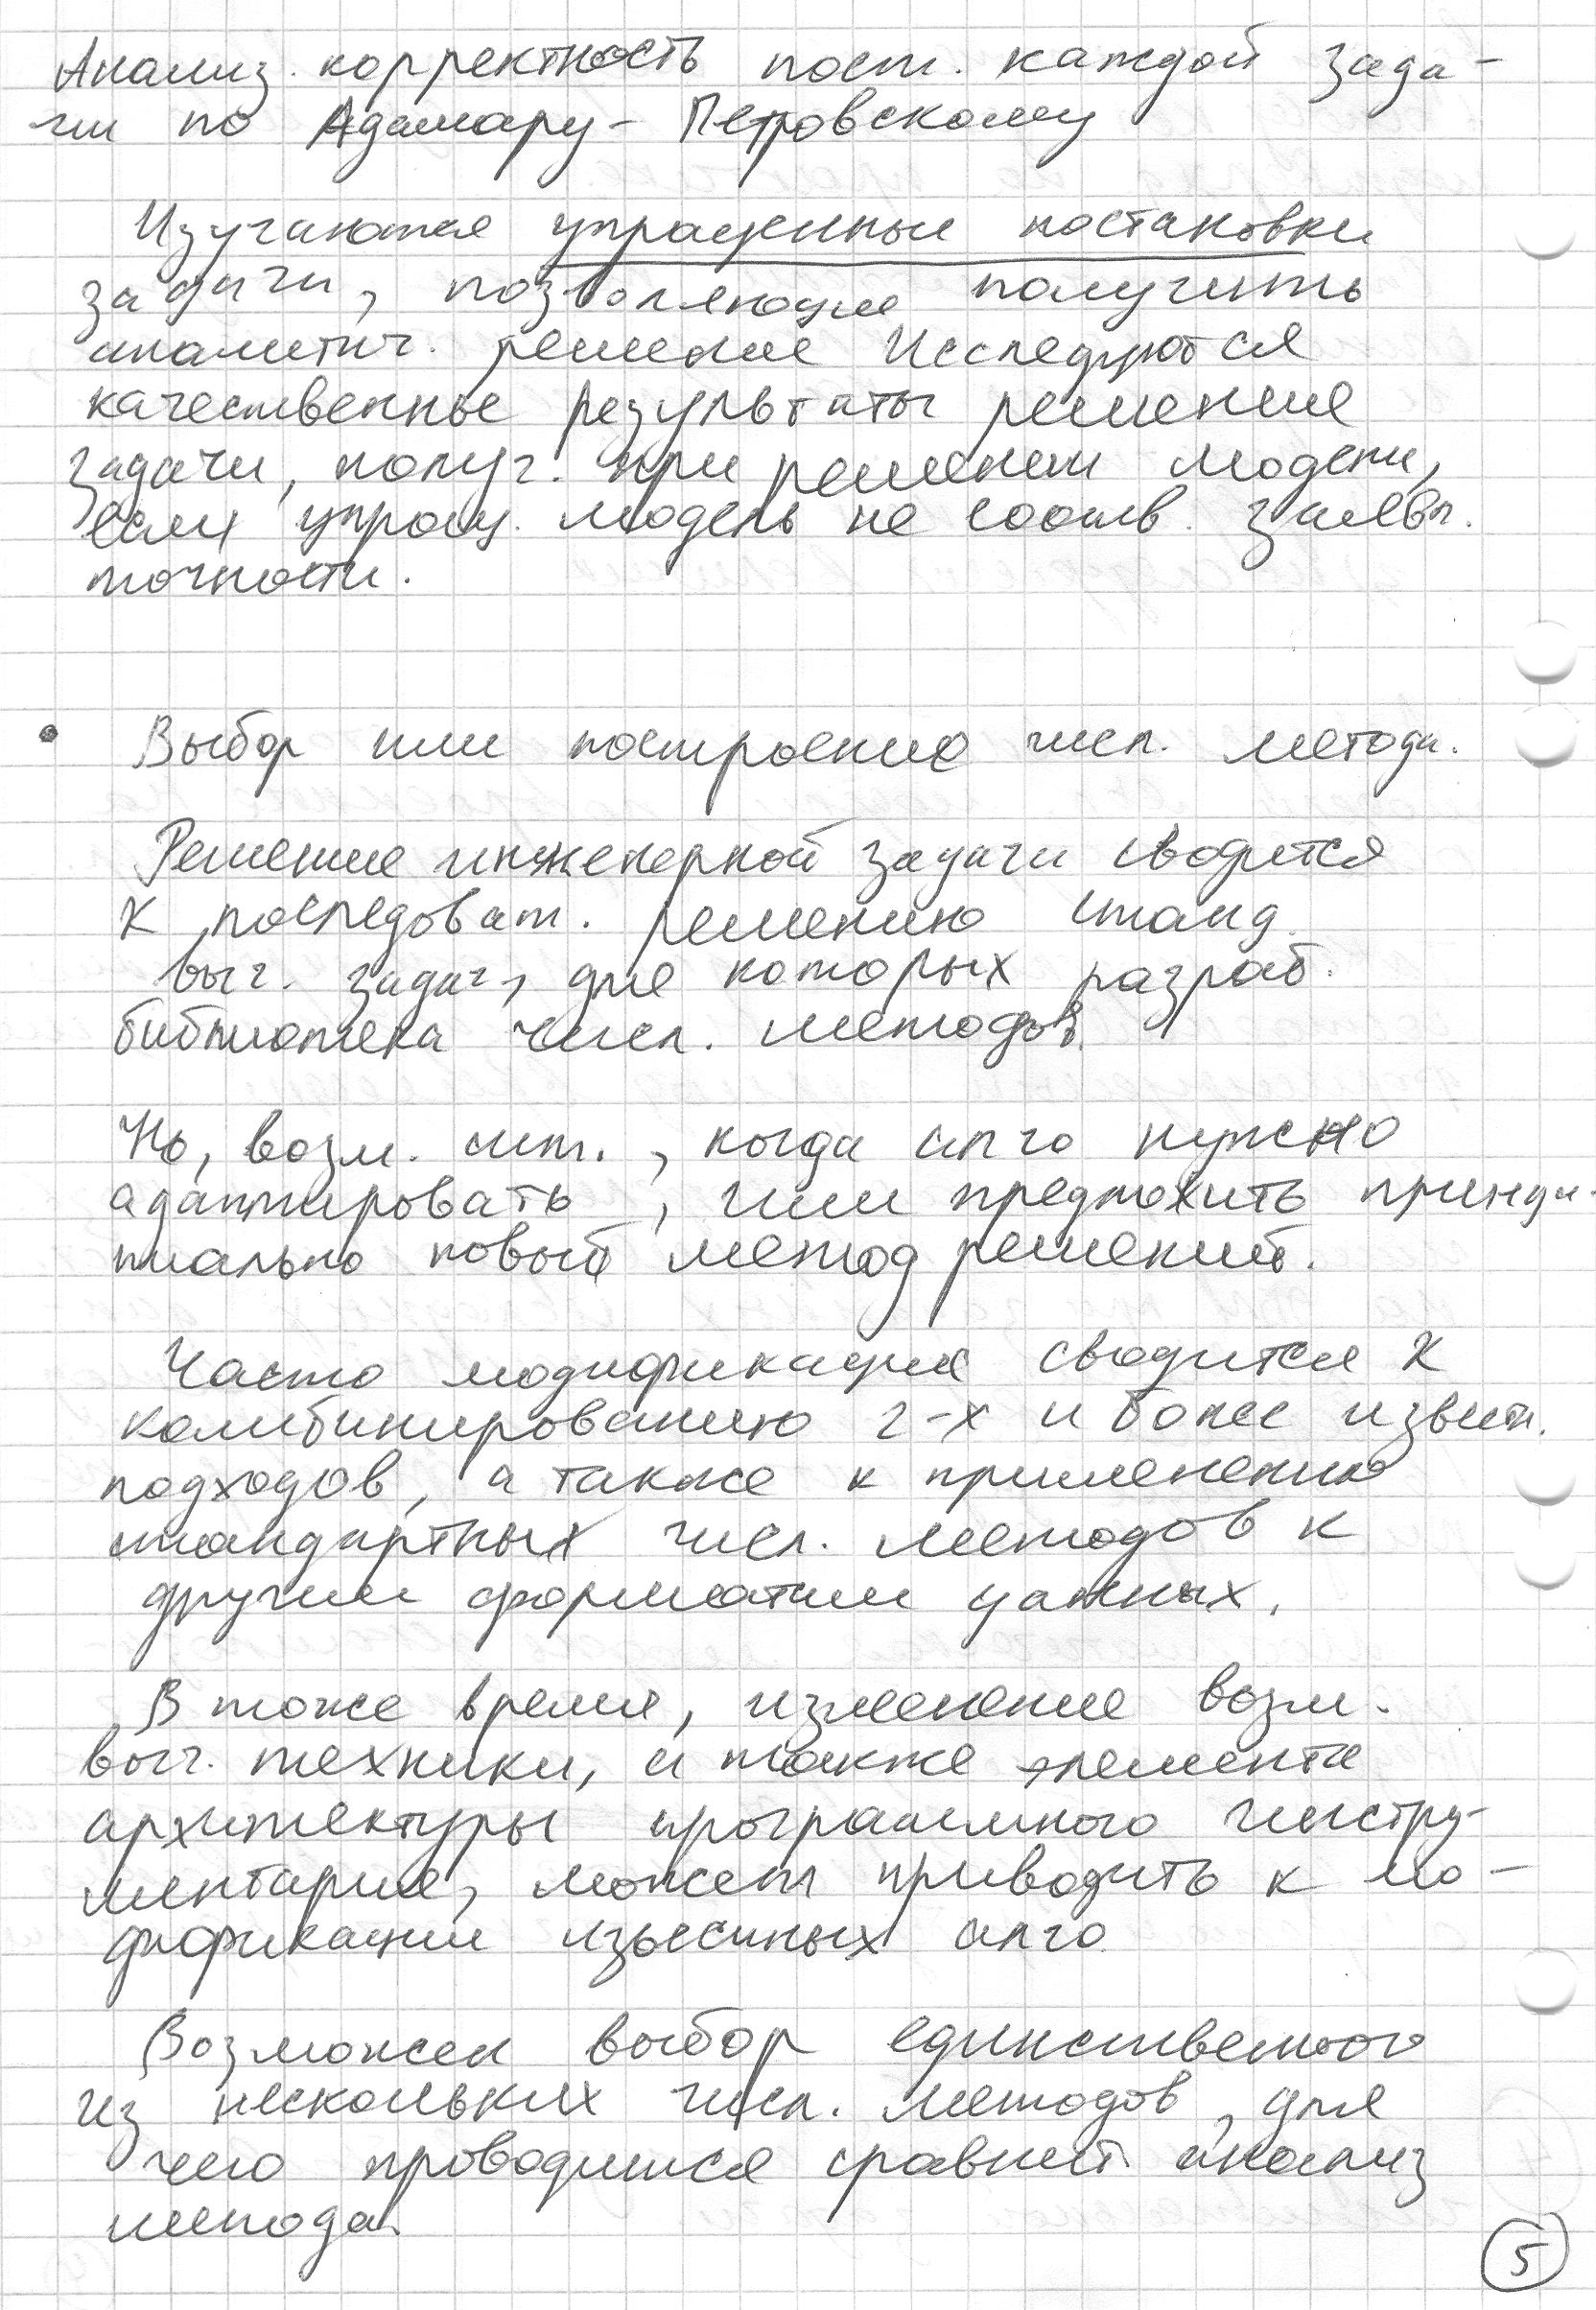 Анализ. корректность пост. каждой зада-
чи по Адамару-Петровскому
Изучаются упрощенные постановки
задачи, позволяющие получить
аналитич. решение Исследуются
качественные результаты решения
задачи, получ. при решении модели,
если упрощ. модель не соотв. заявл.
точности.
• Выбор или построение числ. метода.
Решение инженерной задачи сводится
к последоват. решению станд.
выч. задач, для которых разраб.
библиотека числ. методов.
Но, возм. сит., когда алго нужно
адаптировать, или предложить принци-
пиально новый метод решений.
Часто модификация сводится к
комбинированию 2-х и более известн.
подходов, а также к применению
стандартных числ. методов к
другим форматам данных.
В тоже время, изменение возм.
выч. техники, а также элемента
архитектуры программного инстру-
ментария, может приводить к мо-
дификации извесных алго.
Возможен выбор единственного
из нескольких числ. методов, для
чего проводится сравнит. анализ
метода.
5